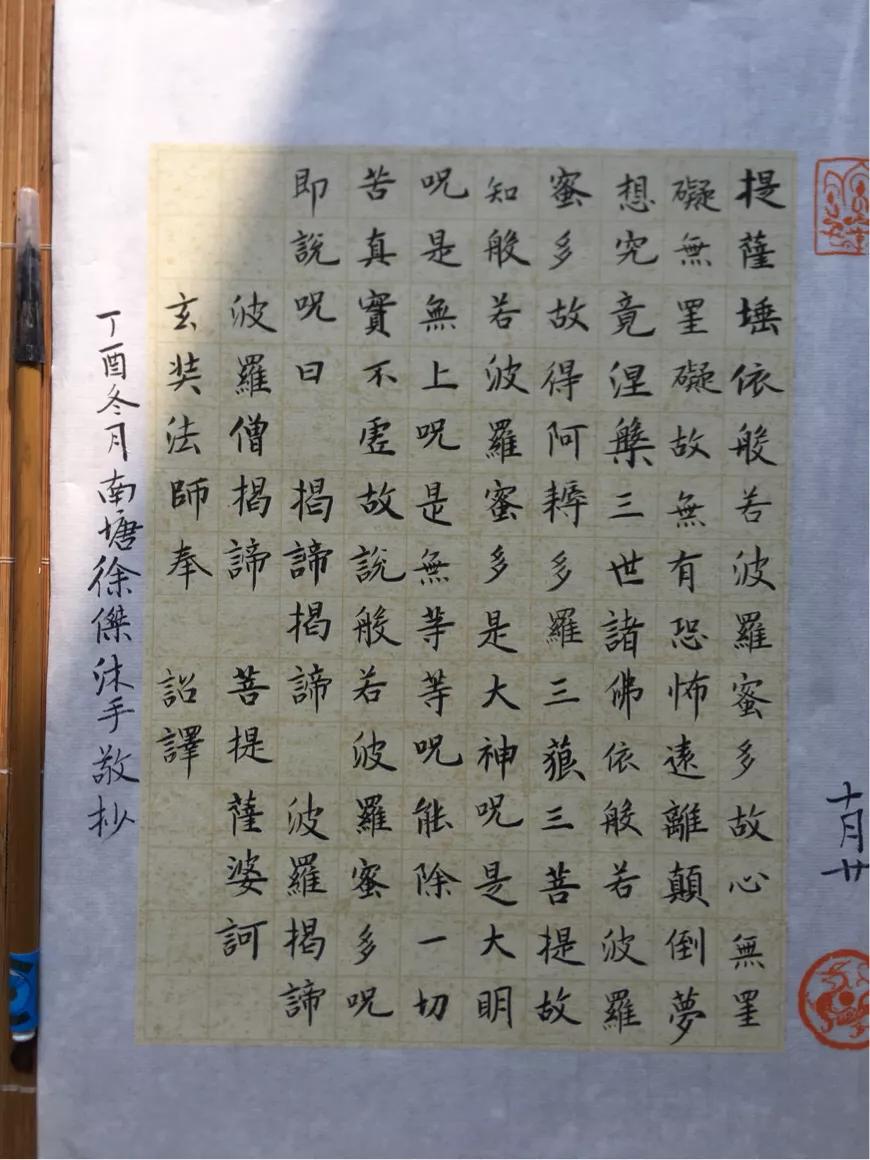 十月廿
提薩埵依般若波羅蜜多故心無罣
礙無罣礙故無有恐怖遠離顛倒夢
想究竟涅槃三世諸佛依般若波羅
蜜多故得阿耨多羅三藐三菩提故
知般若波羅蜜多是大神呪是大明
呪是無上呪是無等等呪能除一切
苦真實不虛故說般若波羅蜜多呪
即說呪曰 揭諦揭諦 波羅揭諦
波羅僧揭諦 菩提薩婆訶
玄奘法師奉 詔譯
丁酉冬月南塘徐傑沐手敬抄